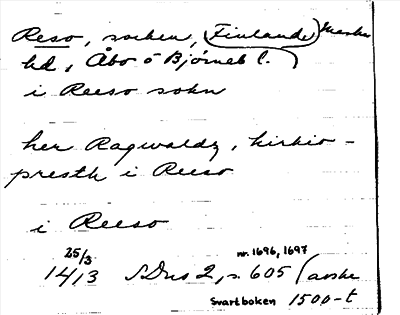 Reso, socken, (Finlande) Masku
hd, Åbo o Björneb l.)
i Reeso sokn
her Ragwaldz, kirkio-
presth i Reeso
i Reeso
25/3 nr. 1696, 1697
1413 SDns 2, s. 605 (avskr
Svartboken 1500-t